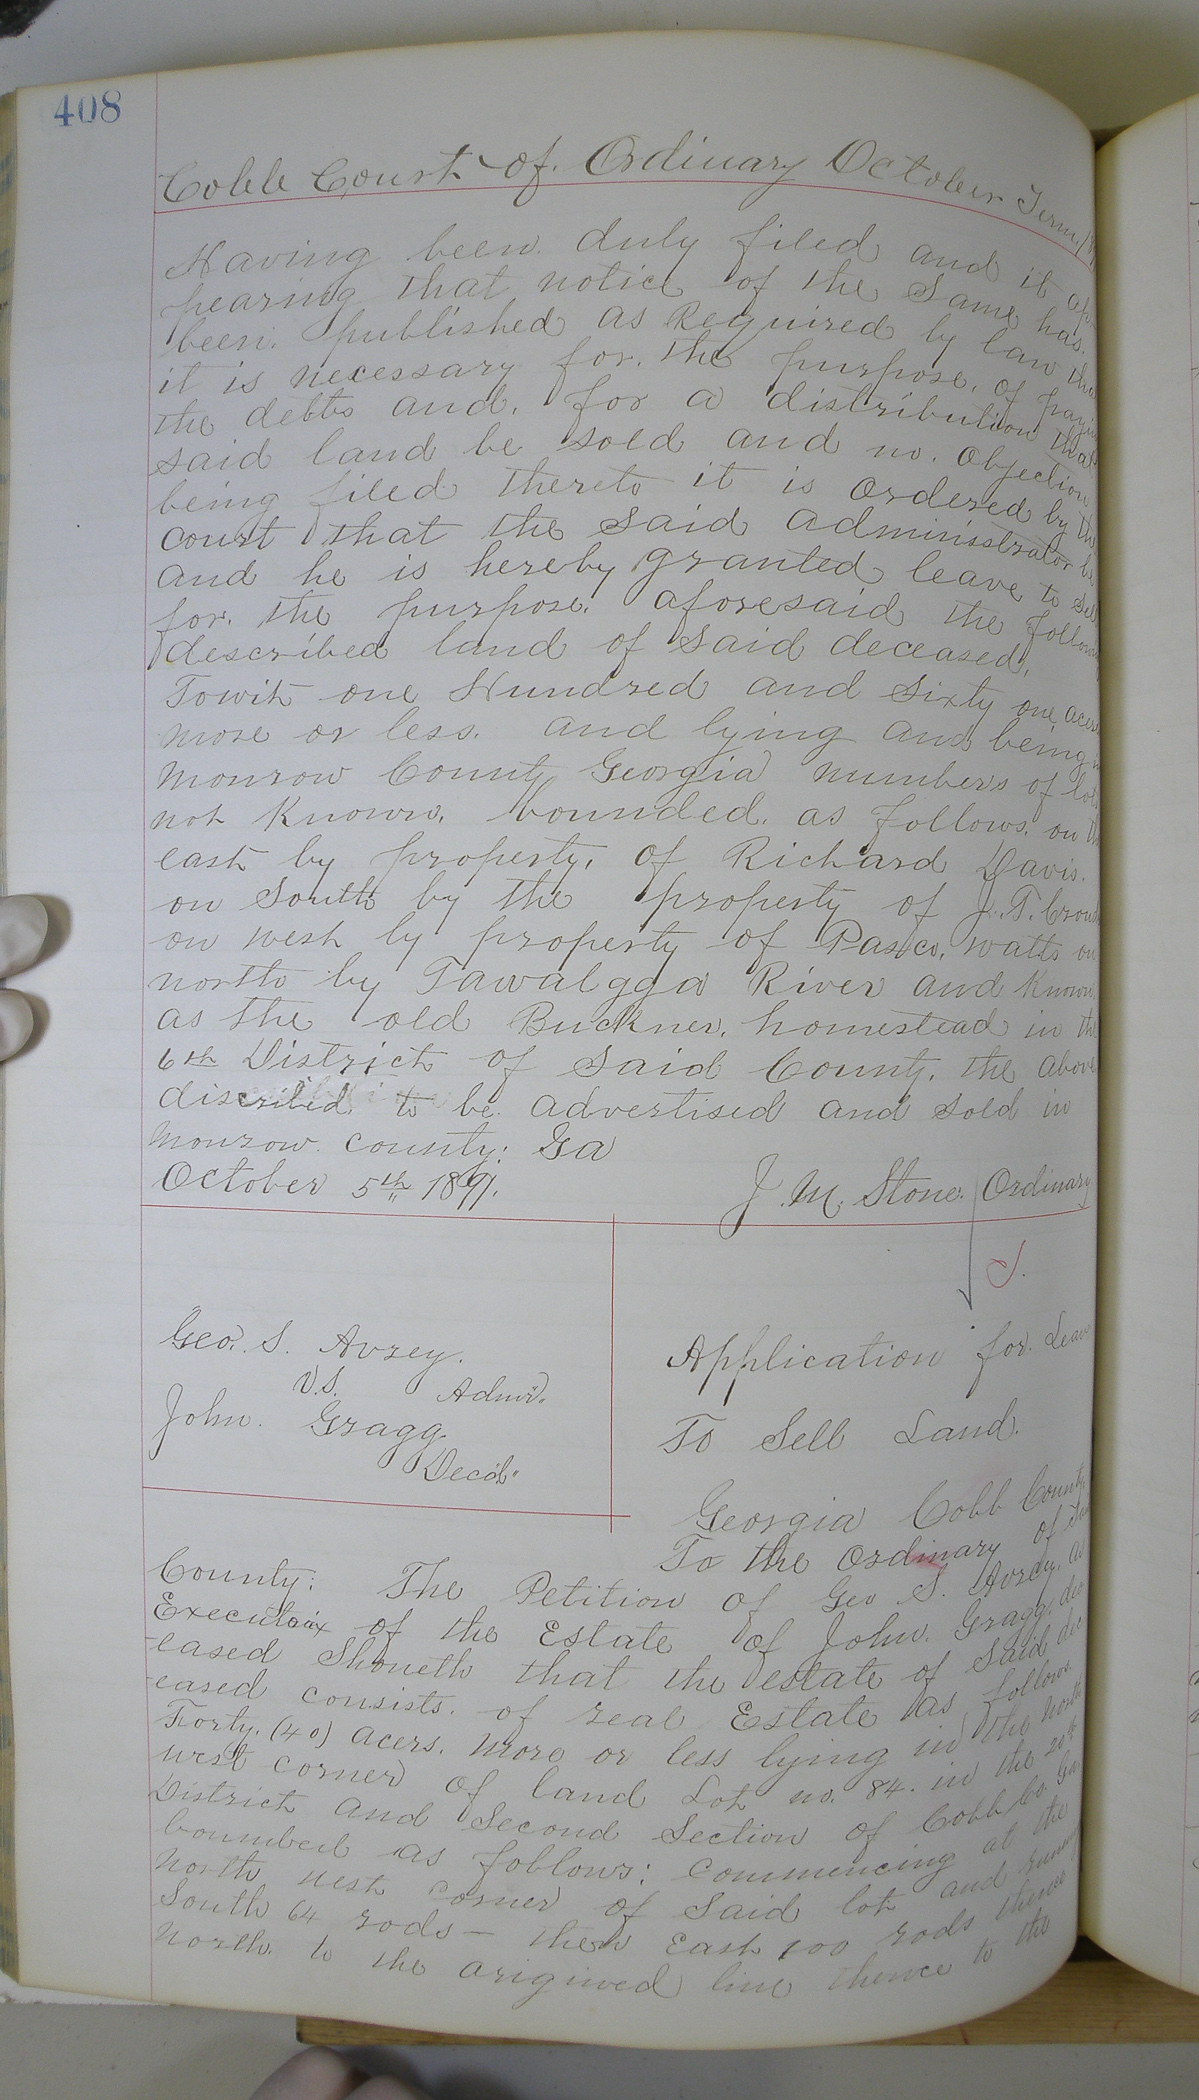 408
Cobb Court of Ordinary October Term
Having been duly filed and it ap
pearing that notice of the Same has
been published as Required by law that
it is necessary for the purpose of paying
the debts and for a distribution that
said land be sold and no objection
being filed thereto it is ordered by the
court that the said administrator be
and he is hereby granted leave to sell
for the purpose aforesaid the following
described land of said deceased,
Towit one Hundred and Sixty one acers
more or less. and lying and being in
Monrow County Georgia numbers of lots
not Known. bounded as follows. on the
east by property, of Richard Davis.
on South by the property of J. T.
on west by property of Pasco. watts on
north by Tawalgga River and Known
as the old Buckner. homestead in the
6th District of Said County. the above
discribed to be advertised and sold in
Monrow. county: Ga
October 5th 1891.
J. M. Stone. Ordinary
Geo. S. Avrey.
V.S. Admr.
John. Gragg.
Decd.
Application for. Leave
To Sell Land.
Georgia Cobb County
To the Ordinary of Said
County: The Petition of Geo S. Avrey. as
Executrix of the Estate of John. Gragg. dec
eased Shoueth that the estate of Said dec
eased consists. of real Estate as follows
Forty. (40) acers. more or less lying in the North
west corner of land Lot no. 84. in the 20th
District and Second Section of Cobb Co. Ga
bounded as follows: commencing at the
North west corner of Said lot and running
South 64 rods — then East 100 rods thence
North. to the origined line thence to the